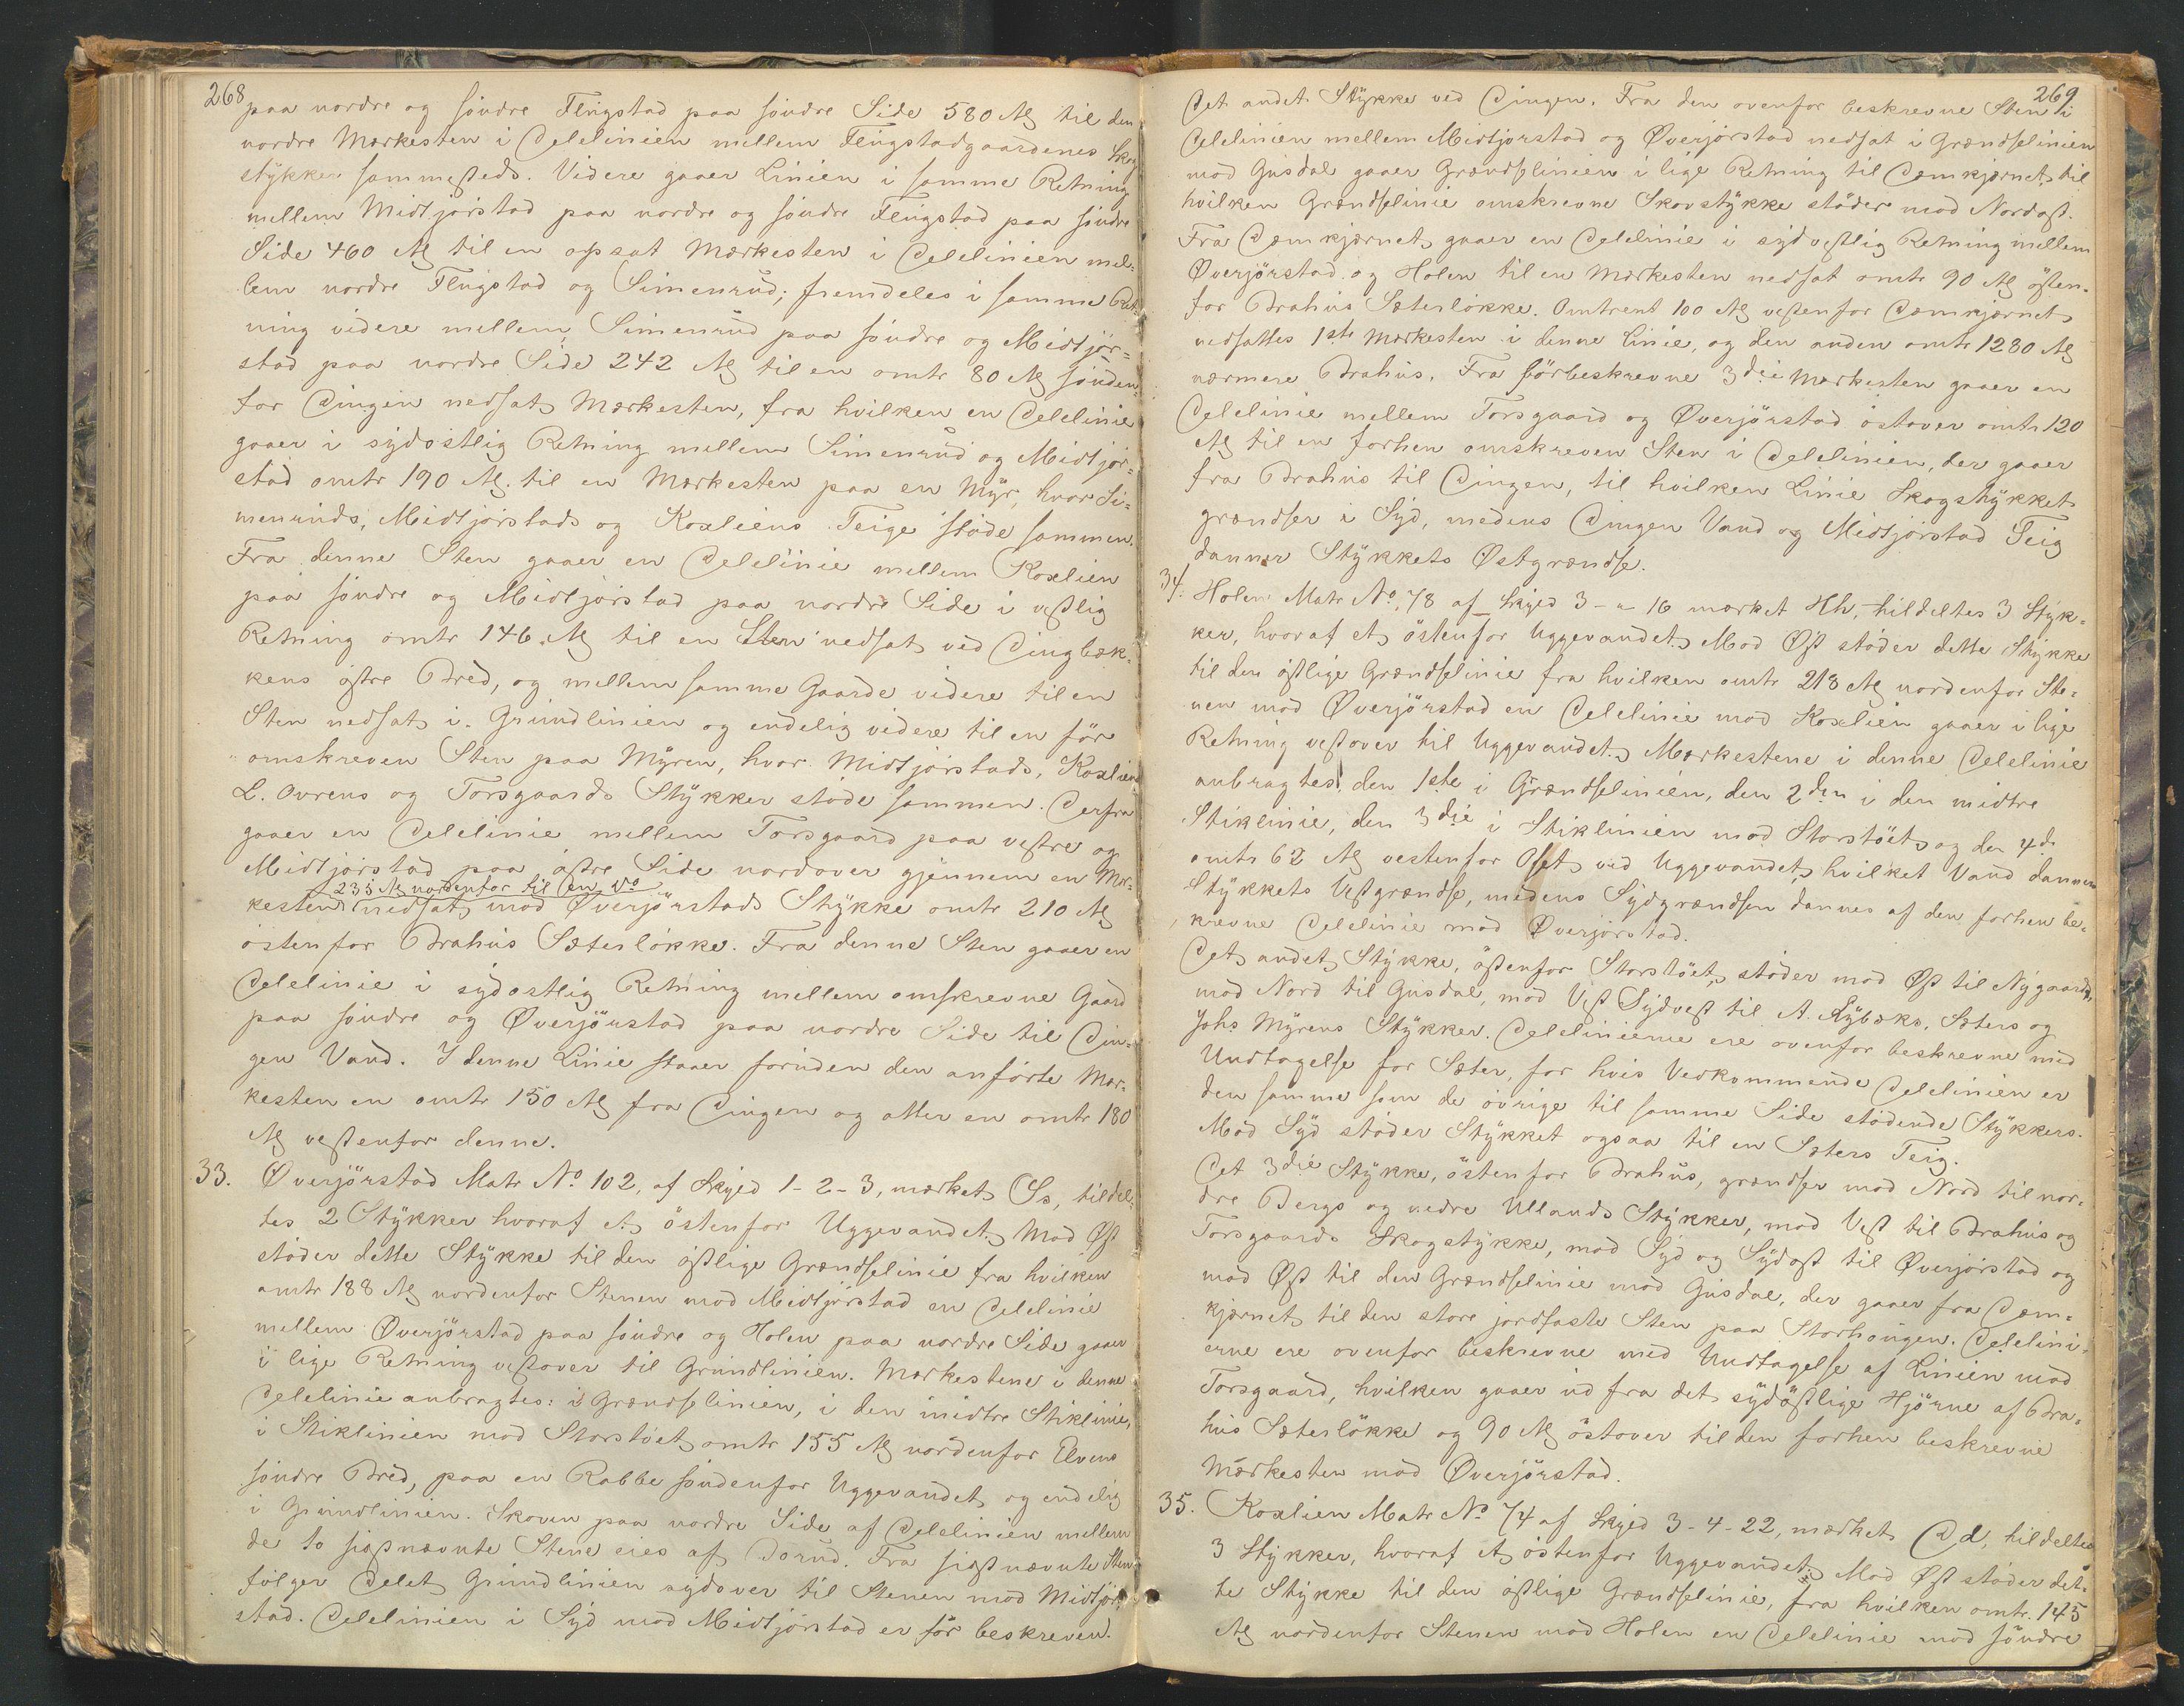 268
paa nordre og søndre Flugstad paa søndre Side 580 Al til den
nordre Mærkesten i Delelinien mellem Flugstadgaardenes Skog
stykker sammesteds. Videre gaaer Linien i samme Retning
mellem Midtjørstad paa nordre og søndre Flugstad paa søndre
Side 460 Al til en opsat Mærkesten i Delelinien mel-
lem nordre Flugstad og Simenrud; fremdeles i samme Ret-
ning videre mellem Simenrud paa søndre og Midtjør-
stad paa nordre Side 242 Al til en omtr 80 Al sønden-
for Dingen nedsat Mærkesten, fra hvilken en Delelinie
gaaer i sydøstlig Retning mellem Simenrud og Midtjør-
stad omtr 190 Al. til en Mærkesten paa en Myr, hvor Si-
menruds, Midtjørstads og Koxliens Teige støde sammen.
Fra denne Sten gaaer en Delelinie mellem Koxlien
paa søndre og Midtjørstad paa nordre Side i vestlig
Retning omtr 146 Al til en Sten nedsat ved Dingbæk-
kens østre Bred, og mellem samme Gaarde videre til en
Sten nedsat i Grundlinien og endelig videre til en før
omskreven Sten paa Myren, hvor Midtjørstads, Koxliens
L. Ovrens og Torsgaards Stykker støde sammen. Derfra
gaaer en Delelinie mellem Torsgaard paa vestre og
Midtjørstad paa østre Side nordover gjennem en Mær-
235 Al nordenfor til en do
kesten nedsat mod Øverjørstads Stykke omtr 210 Al
østenfor Brahus Sæterløkke. Fra denne Sten gaaer en
Delelinie i sydostlig Retning mellem omskrevne Gaard
paa søndre og Øverjørstad paa nordre Side til Din-
gen Vand. I denne Linie staaer foruden den anførte Mær-
kesten en omtr 150 Al fra Dingen og atter en omtr 180
Al vestenfor denne.
33. Øverjørstad Matr No 102, af Skyld 1-2-3, mærket Ss, tildel-
tes 2 Stykker hvoraf et østenfor Uggevandet. Mod Øst
støder dette Stykke til den østlige Grændselinie fra hvilken
omtr 188 Al nordenfor Stenen mod Midtjørstad en Delelinie
mellem Øverjørstad paa søndre og Holen paa nordre Side gaaer
i lige Retning vestover til Grundlinien. Mærkestene i denne
Delelinie anbragtes: i Grændselinien, i den midtre Stiklinie,
i Stiklinien mod Storstøet omtr 155 Al nordenfor Elvens
søndre Bred, paa en Rabbe søndenfor Uggevandet og endelig
i Grundlinien. Skoven paa nordre Side af Delelinien mellem
de to sistnævnte Stene eies af Dorud. Fra sistnævnte Sten
følger Delet Grundlinien sydover til Stenen mod Midtjør-
stad. Delelinien i Syd mod Midtjørstad er før beskreven.
269
Det andet Stykke ved Dingen. Fra den ovenfor beskrevne Sten i
Delelinien mellem Midtjørstad og Øverjørstad nedsat i Grændselinien
mod Gusdal gaaer Grændselinien i lige Retning til Dæmkjærnet til
hvilken Grændselinie omskrevne Skovstykke støder mod Nordost.
Fra Dæmkjærnet gaaer en Delelinie i sydvestlig Retning mellem
Øverjørstad og Holen til en Mærkesten nedsat omtr 90 Al østen-
for Brahus Sæterløkke. Omtrent 100 Al vestenfor Dæmkjærnet
nedsattes 1ste Mærkesten i denne Linie, og den anden omtr 1280 Al
nærmere Brahus. Fra førbeskrevne 3die Mærkesten gaaer en
Delelinie mellem Torsgaard og Øverjørstad østover omtr 120
Al til en forhen omskreven Sten i Delelinien, der gaaer
fra Brahus til Dingen, til hvilken Linie Skogstykket
grændser i Syd, medens Dingen Vand og Midtjørstad Teig
danner Stykkets Østgrændse.
34. Holen Matr No. 78 af Skyld 3-"-16 mærket Hh, tildeltes 3 Styk-
ker, hvoraf et østenfor Uggevandet. Mod Øst støder dette Stykke
til den østlige Grændselinie fra hvilken omtr 213 Al nordenfor Ste-
nen mod Øverjørstad en Delelinie mod Koxlien gaaer i lige
Retning vestover til Uggevandet. Mærkestene i denne Delelinie
anbragtes: den 1ste i Grændselinien, den 2den i den midtre
Stiklinie, den 3die i Stiklinien mod Storstøet og den 4de
omtr 62 Al vestenfor Oset ved Uggevandet, hvilket Vand danner
Stykkets Vestgrændse, medens Sydgrændsen dannes af den forhen be-
skrevne Delelinie mod Øverjørstad.
Det andet Stykke, østenfor Storstøet, støder mod Øst til Nygaard,
mod Nord til Gusdal, mod Vest Sydvest til A. Rybæks, Sæters og
Johs Myrens Stykker. Delelinierne ere ovenfor beskrevne med
Undtagelse for Sæter, for hvis Vedkommende Delelinien er
den samme som de øvrige til samme Side stødende Stykkers.
Mod Syd støder Stykket ogsaa til en Sæters Teig.
Det 3die Stykke, østenfor Brahus, grændser mod Nord til nor-
dre Bergs og nedre Ullands Stykker, mod Vest til Brahus og
Torsgaards Skogstykke, mod Syd og Sydost til Øverjørstad og
mod Øst til den Grændselinie mod Gusdal, der gaaer fra Dæm-
kjærnet til den store jordfaste Sten paa Storhougen. Delelini-
erne ere ovenfor beskrevne med Undtagelse af Linien mod
Torsgaard, hvilken gaaer ud fra det sydøstlige Hjørne af Bra-
hus Sæterløkke og 90 Al østover til den forhen beskrevne
Mærkesten mod Øverjørstad.
35. Koxlien Matr No 74 af Skyld 3-4-22, mærket Dd, tildeltes
3 Stykker, hvoraf et østenfor Uggevandet. Mod Øst støder det-
te Stykke til den østlige Grændselinie, fra hvilken omtr. 145
Al nordenfor Stenen mod Holen en Delelinie mod søndre